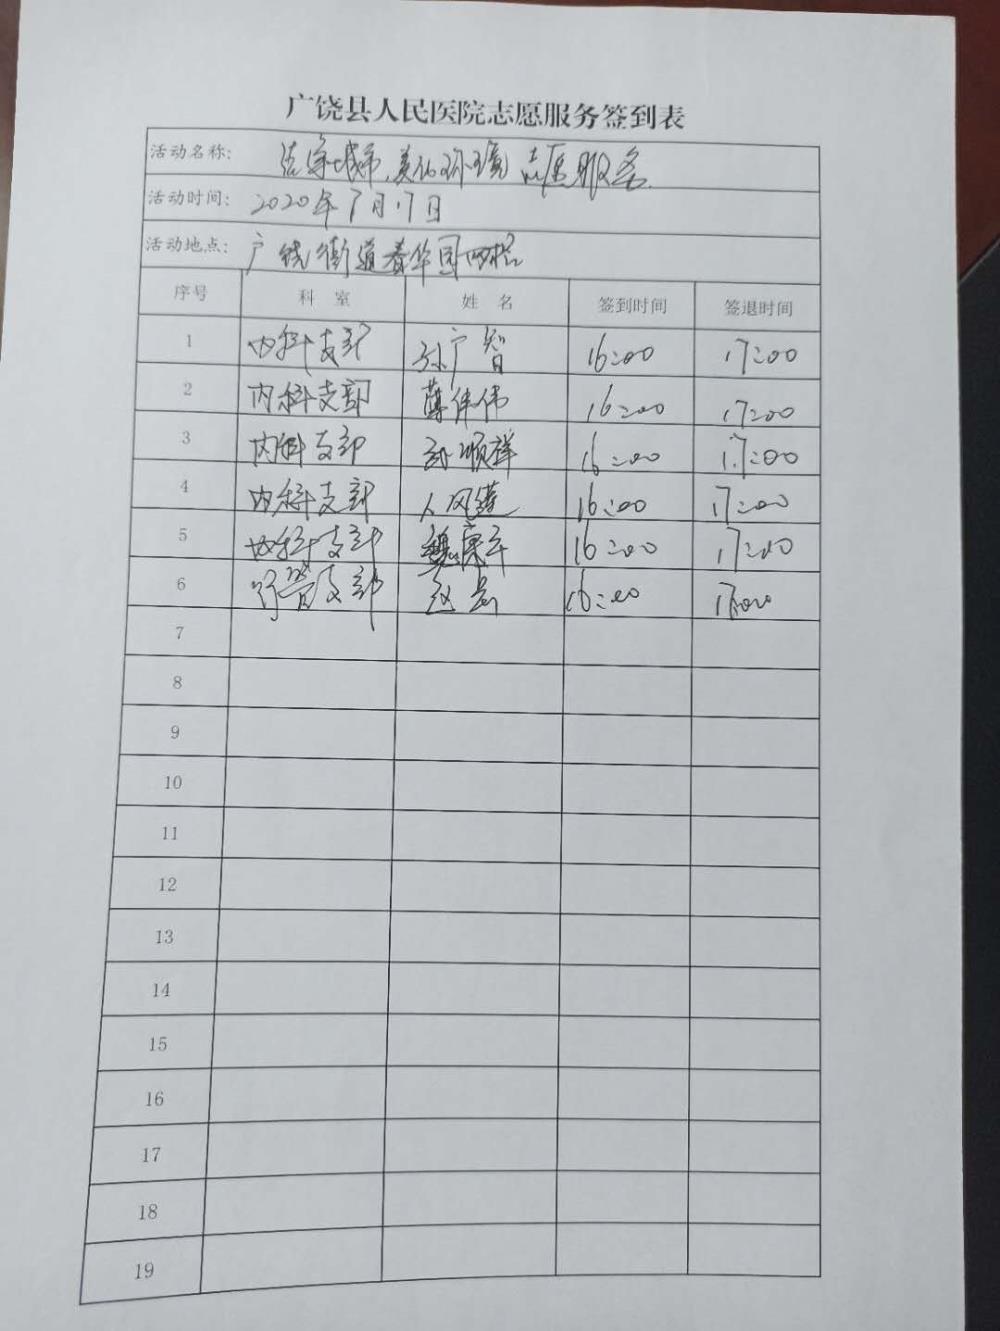 广饶县人民医院志愿服务签到表
活动名称: 洁净城市,美化环境 志愿服务
活动时间: 2020年7月17日
活动地点: 广饶街道春华园
序号 科室 姓名 签到时间 签退时间
1 内科支部 孙广智 16:00 17:00
2 内科支部 薄伟伟 16:00 17:00
3 内科支部 顺祥 16:00 17:00
4 内科支部 16:00 17:00
5 内科支部 魏康平 16:00 17:00
6 行管支部 赵 16:00 17:00
7
8
9
10
11
12
13
14
15
16
17
18
19